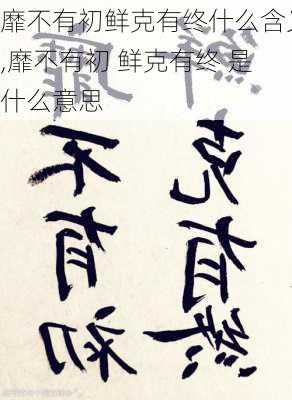 靡不有初鲜克有终什么含义
,靡不有初 鲜克有终 是
什么意思
靡不有初
鲜克有终